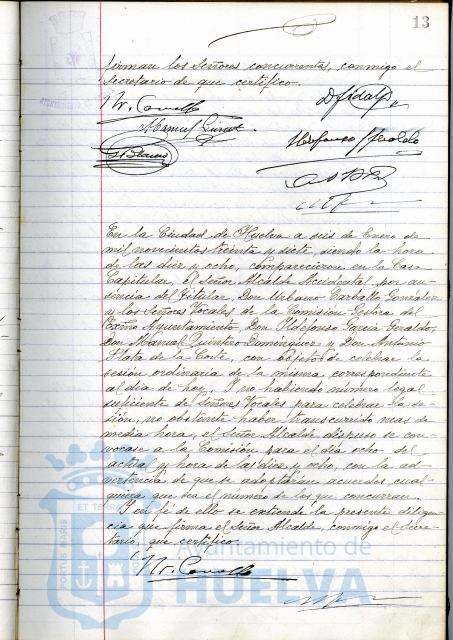 13
firman los Señores concurrentes, conmigo el
Secretario de que certifico.
En la Ciudad de Huelva a seis de Enero de
mil novecientos treinta y siete, siendo la hora
de las diez y ocho, comparecieron en la Casa
Capitular, el Señor Alcalde Accidental, por au-
sencia del Titular, Don Urbano Carballo González
y los Señores Vocales de la Comisión Gestora del
Excmo Ayuntamiento, Don Ildefonso García Geraldo,
Don Manuel Quintero Domínguez y Don Antonio
Plata de la Corte, con objeto de celebrar la
sesión ordinaria de la misma correspondiente
al día de hoy. Y no habiendo número legal
suficiente de Señores Vocales para celebrar la se-
sión, no obstante haber transcurrido mas de
media hora, el Señor Alcalde dispuso se con-
vocase a la Comisión para el día ocho del
actual y hora de las diez y ocho, con la ad-
vertencia de que se adoptarán acuerdos cual-
quiera que sea el número de los que concurran.
Y en fé de ello se extiende la presente diligen-
cia que firma el Señor Alcalde, conmigo el Secre-
tario, que certifico.
Ayuntamiento de
HUELVA
PORTUS MARIS ET TERRAE